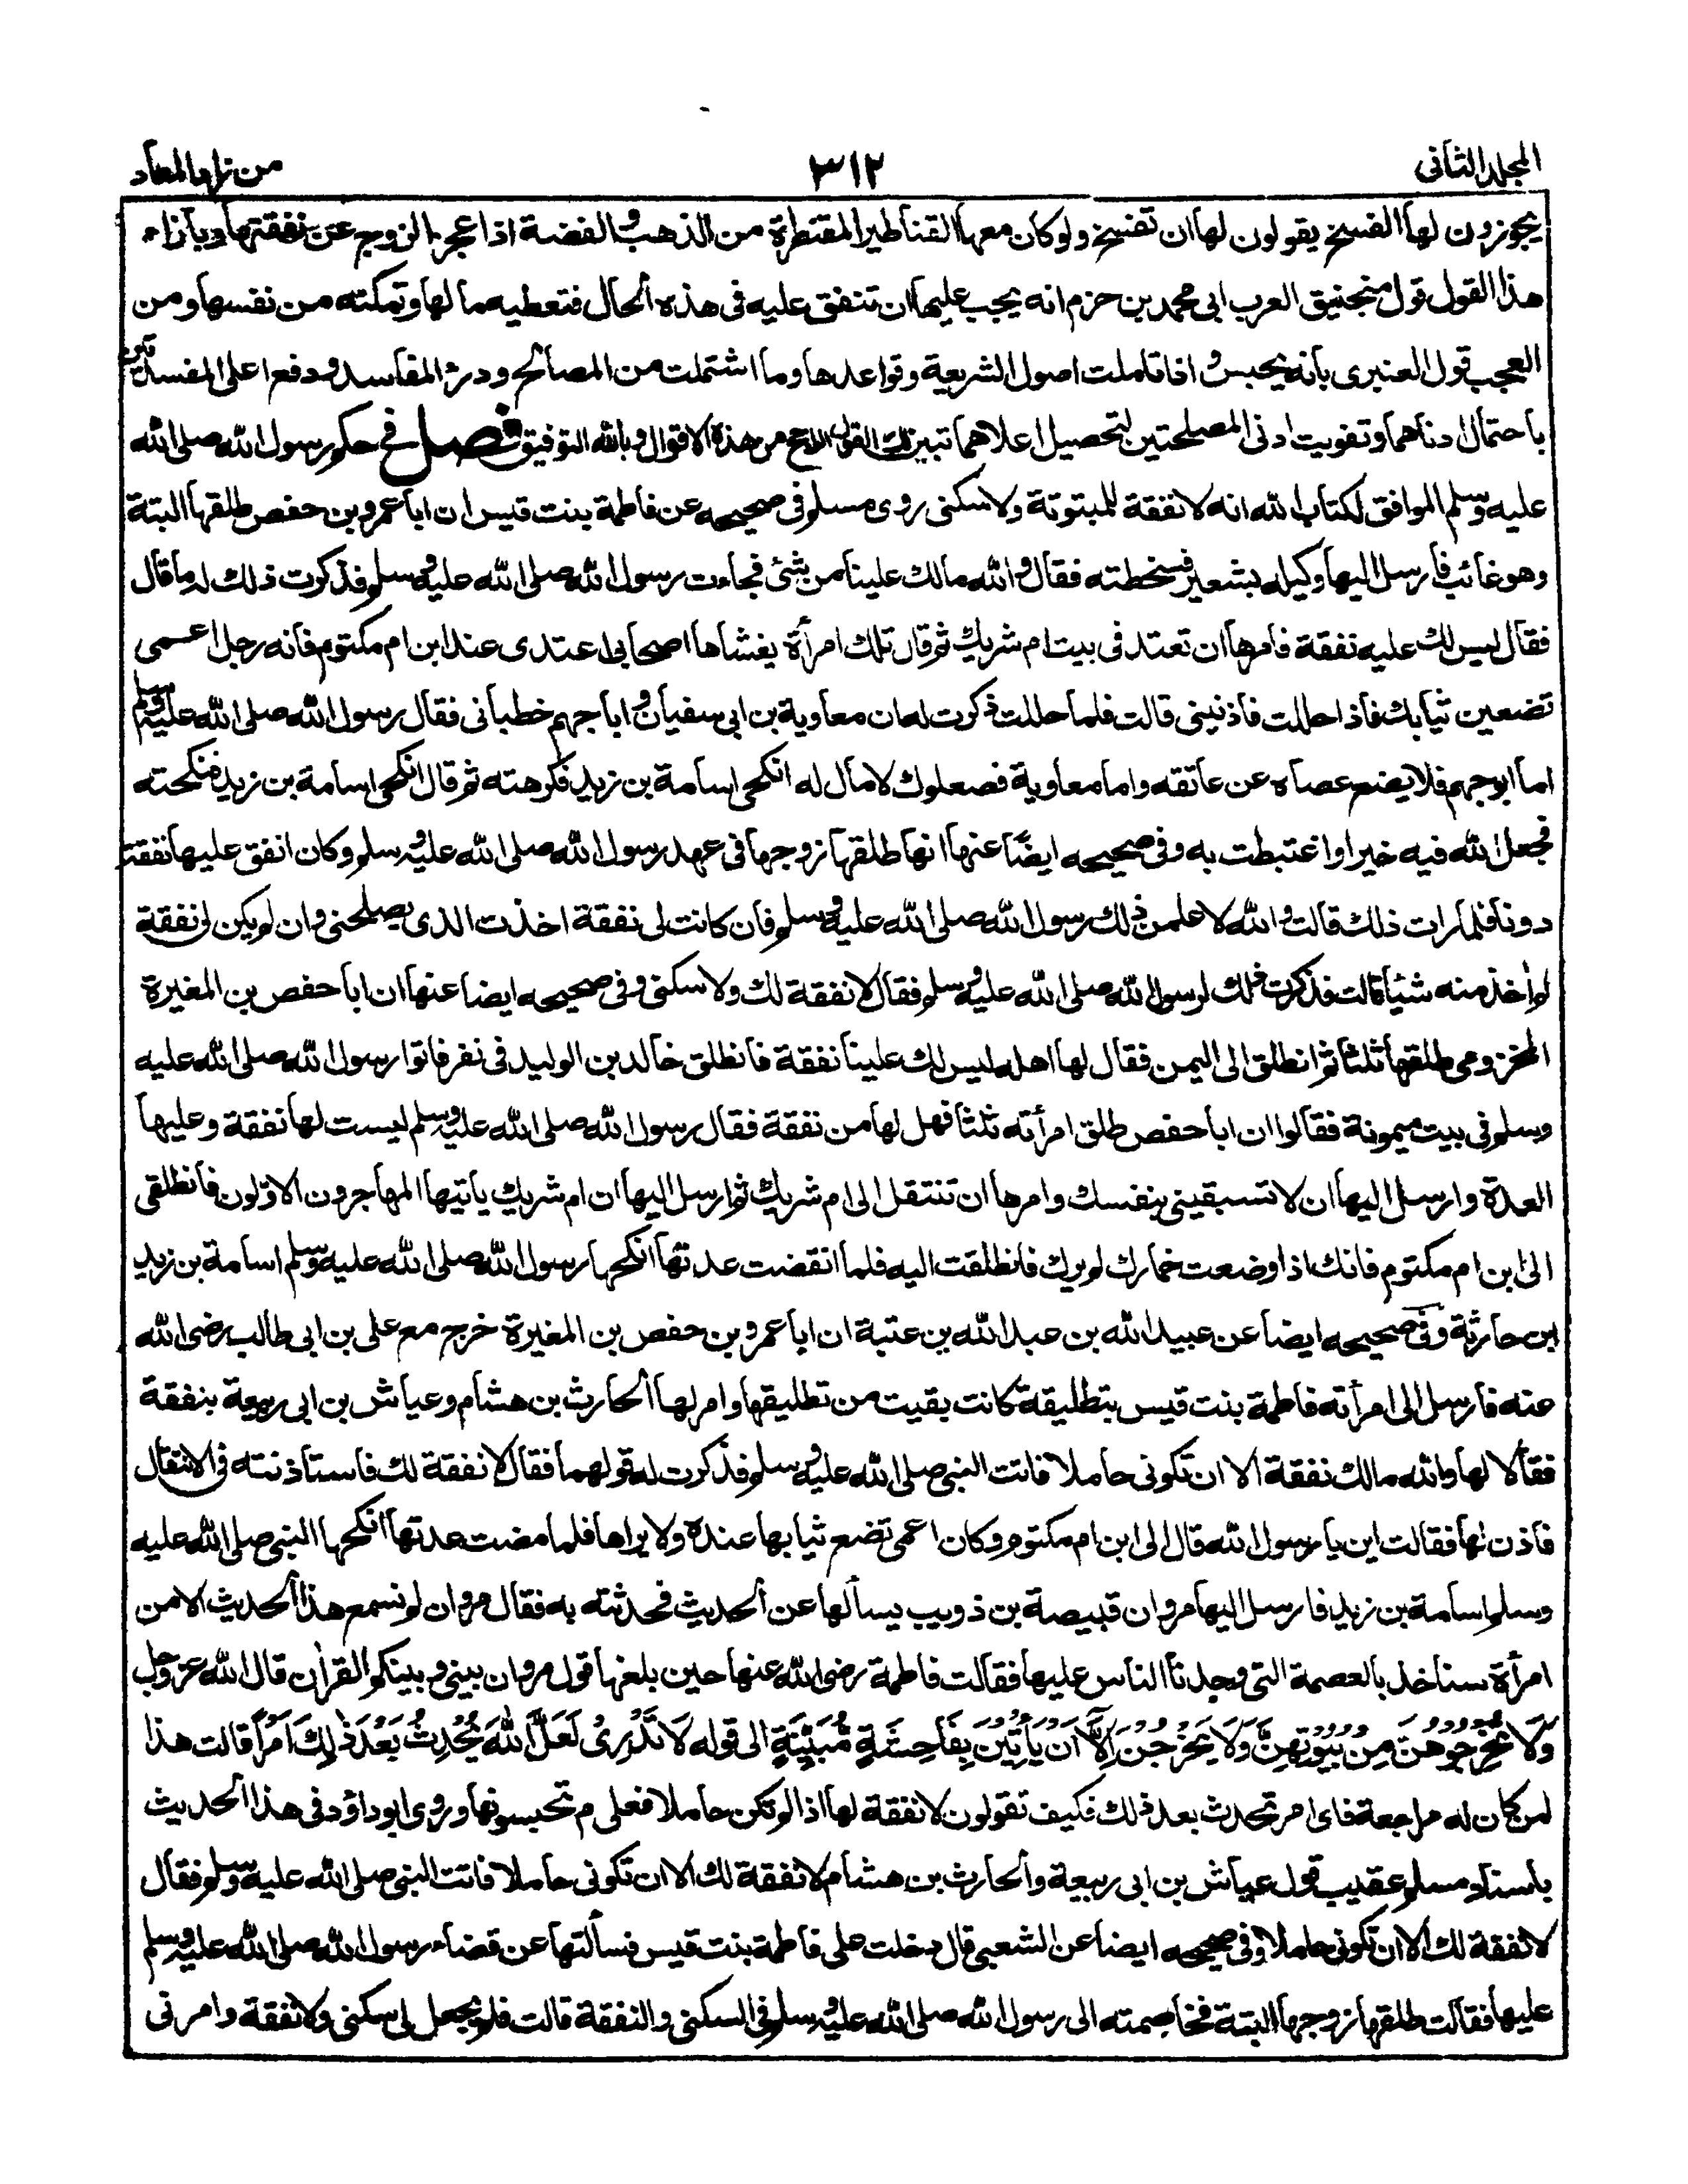 المجلد الثانى
٣١٢
من زاد المعاد
يجوزون لها الفسخ يقولون لها ان تفسخ ولو كان معها القناطير المقنطرة من الذهب والفضة اذا عجز الزوج عن نفقتها وبازاء
هذا القول قول منجنيق العرب ابى محمد بن حزم انه يجب عليها ان تنفق عليه فى هذه الحال فتعطيه مالها وتمكنه من نفسها ومن
العجب قول العنبرى بانه يحبس واذا تاملت اصول الشريعة وقواعدها وما اشتملت من المصالح ودرء المفاسد ودفع اعلى المفسدتين
باحتمال ادناهما وتفويت ادنى المصلحتين لتحصيل اعلاهما تبين لك القول الراجح من هذه الاقوال وبالله التوفيق فصل فى حكم رسول الله صلى الله
عليه وسلم الموافق لكتاب الله انه لا نفقة للمبتوتة ولا سكنى روى مسلم فى صحيحه عن فاطمة بنت قيس ان ابا عمرو بن حفص طلقها البتة
وهو غائب فارسل اليها وكيله بشعير فسخطته فقال والله مالك علينا من شئ فجاءت رسول الله صلى الله عليه وسلم فذكرت ذلك له ما قال
فقال ليس لك عليه نفقة فامرها ان تعتد فى بيت ام شريك ثم قال تلك امرأة يغشاها اصحابى اعتدى عند ابن ام مكتوم فانه رجل اعمى
تضعين ثيابك فاذا حللت فاذنينى قالت فلما حللت ذكرت له ان معاوية بن ابى سفيان وابا جهم خطبانى فقال رسول الله صلى الله عليه وسلم
اما ابو جهم فلا يضع عصاه عن عاتقه واما معاوية فصعلوك لا مال له انكحى اسامة بن زيد فكرهته ثم قال انكحى اسامة بن زيد فنكحته
فجعل الله فيه خيرا واغتبطت به وفى صحيحه ايضًا عنها انها طلقها زوجها فى عهد رسول الله صلى الله عليه وسلم وكان انفق عليها نفقة
دونا فلما رات ذلك قالت والله لا علمن ذلك رسول الله صلى الله عليه وسلم فان كانت لى نفقة اخذت الذى يصلحنى وان لم يكن لى نفقة
لم اخذ منه شيئا قالت فذكرت ذلك لرسول الله صلى الله عليه وسلم فقال لا نفقة لك ولا سكنى وفى صحيحه ايضا عنها ان ابا حفص بن المغيرة
المخزومى طلقها ثلثا ثم انطلق الى اليمن فقال لها اهله ليس لك علينا نفقة فانطلق خالد بن الوليد فى نفر فاتوا رسول الله صلى الله عليه
وسلم فى بيت ميمونة فقالوا ان ابا حفص طلق امرأته ثلثا فهل لها من نفقة فقال رسول الله صلى الله عليه وسلم ليست لها نفقة وعليها
العدة وارسل اليها ان لا تسبقينى بنفسك وامرها ان تنتقل الى ام شريك ثم ارسل اليها ان ام شريك ياتيها المهاجرون الاولون فانطلقى
الى ابن ام مكتوم فانك اذا وضعت خمارك لم يرك فانطلقت اليه فلما انقضت عدتها انكحها رسول الله صلى الله عليه وسلم اسامة بن زيد
ابن حارثة وفى صحيحه ايضا عن عبيد الله بن عبد الله بن عتبة ان ابا عمرو بن حفص بن المغيرة خرج مع على بن ابى طالب رضى الله
عنه فارسل الى امرأته فاطمة بنت قيس بتطليقة كانت بقيت من تطليقها وامر لها الحارث بن هشام وعياش بن ابى ربيعة بنفقة
فقالا لها والله مالك نفقة الا ان تكونى حاملا فاتت النبى صلى الله عليه وسلم فذكرت له قولهما فقال لا نفقة لك فاستاذنته فى الانتقال
فاذن لها فقالت اين يا رسول الله قال الى ابن ام مكتوم وكان اعمى تضع ثيابها عنده ولا يراها فلما مضت عدتها انكحها النبى صلى الله عليه
وسلم اسامة بن زيد فارسل اليها مروان قبيصة بن ذويب يسألها عن الحديث فحدثته به فقال مروان لم نسمع هذا الحديث الا من
امرأة سناخذ بالعصمة التى وجدنا الناس عليها فقالت فاطمة رضى الله عنها حين بلغها قول مروان بينى وبينكم القرأن قال الله عز وجل
وَلَا تُخْرِجُوْهُنَّ مِنْ بُيُوْتِهِنَّ وَلَا يَخْرُجْنَ اِلَّا اَنْ يَاْتِيْنَ بِفَاحِشَةٍ مُّبَيِّنَةٍ الى قوله لَا تَدْرِىْ لَعَلَّ اللهَ يُحْدِثُ بَعْدَ ذٰلِكَ اَمْرًا قالت هذا
لمن كان له مراجعة فاى امر تحدث بعد ذلك فكيف تقولون لا نفقة لها اذا لم تكن حاملا فعلى م تحبسونها وروى ابو داؤد فى هذا الحديث
باسناد مسلم عقيب قول عياش بن ابى ربيعة والحارث بن هشام لا نفقة لك الا ان تكونى حاملا فاتت النبى صلى الله عليه وسلم فقال
لا نفقة لك الا ان تكونى حاملا وفى صحيحه ايضا عن الشعبى قال دخلت على فاطمة بنت قيس فسألتها عن قضاء رسول الله صلى الله عليه وسلم
عليها فقالت طلقها زوجها البتة فخاصمته الى رسول الله صلى الله عليه وسلم فى السكنى والنفقة قالت فلم يجعل لى سكنى ولا نفقة وامرنى